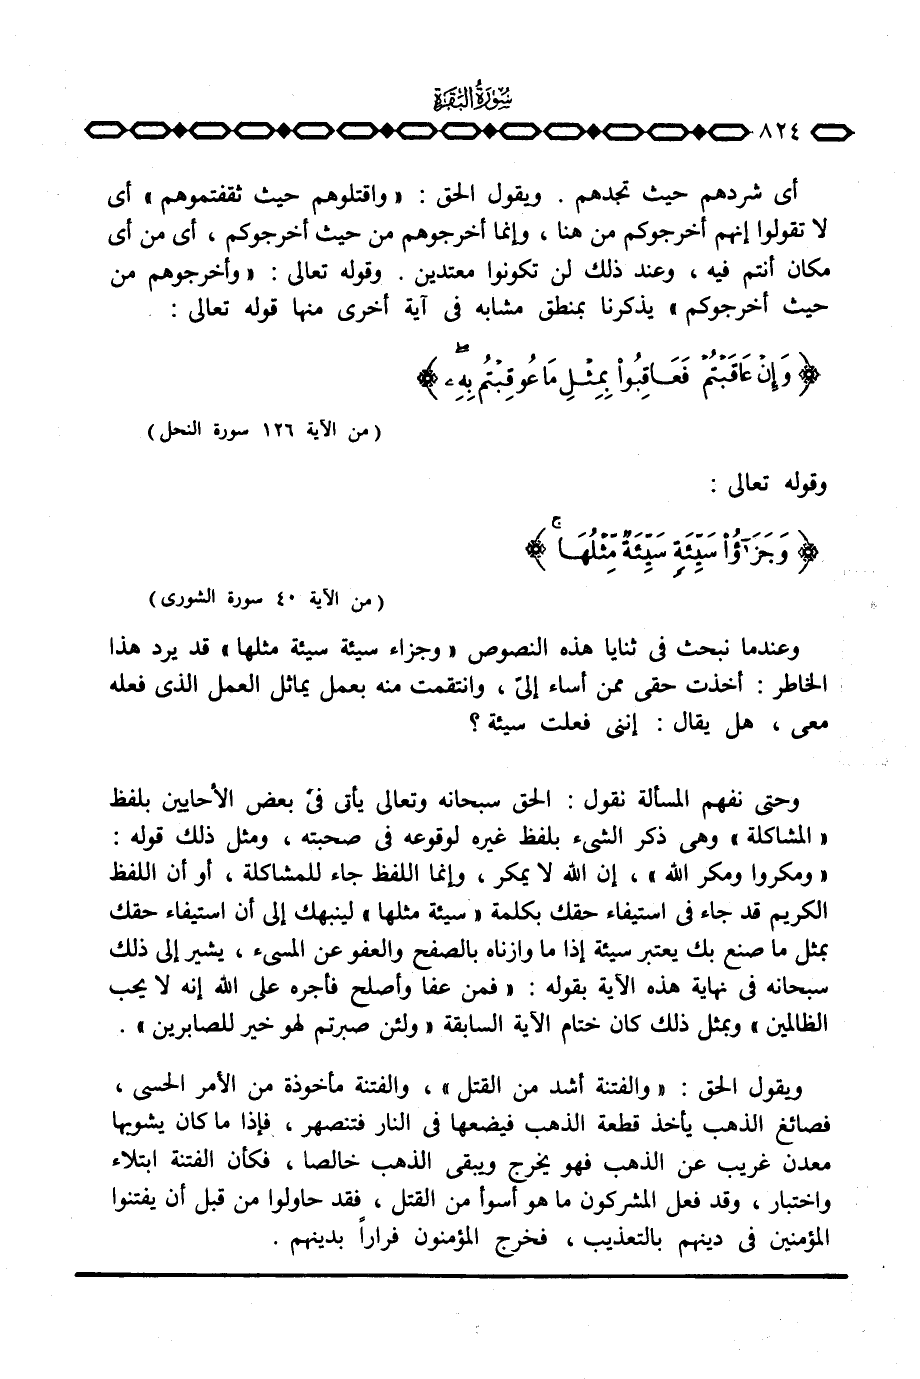 سُورَةُ البَقَرَة
٨٢٤
أى شردهم حيث تجدهم . ويقول الحق : « واقتلوهم حيث ثقفتموهم » أى
لا تقولوا إنهم أخرجوكم من هنا ، وإنما أخرجوهم من حيث أخرجوكم ، أى من أى
مكان أنتم فيه ، وعند ذلك لن تكونوا معتدين . وقوله تعالى : « وأخرجوهم من
حيث أخرجوكم » يذكرنا بمنطق مشابه فى آية أخرى منها قوله تعالى :
﴿ وَإِنْ عَاقَبْتُمْ فَعَاقِبُوا۟ بِمِثْلِ مَا عُوقِبْتُم بِهِۦ ۖ ﴾
( من الآية ١٢٦ سورة النحل )
وقوله تعالى :
﴿ وَجَزَٰٓؤُا۟ سَيِّئَةٍ سَيِّئَةٌ مِّثْلُهَا ۚ ﴾
( من الآية ٤٠ سورة الشورى )
وعندما نبحث فى ثنايا هذه النصوص « وجزاء سيئة سيئة مثلها » قد يرد هذا
الخاطر : أخذت حقى ممن أساء إلىّ ، وانتقمت منه بعمل يماثل العمل الذى فعله
معى ، هل يقال : إننى فعلت سيئة ؟
وحتى نفهم المسألة نقول : الحق سبحانه وتعالى يأتى فى بعض الأحايين بلفظ
« المشاكلة » وهى ذكر الشىء بلفظ غيره لوقوعه فى صحبته ، ومثل ذلك قوله :
« ومكروا ومكر الله » ، إن الله لا يمكر ، وإنما اللفظ جاء للمشاكلة ، أو أن اللفظ
الكريم قد جاء فى استيفاء حقك بكلمة « سيئة مثلها » لينبهك إلى أن استيفاء حقك
بمثل ما صنع بك يعتبر سيئة إذا ما وازناه بالصفح والعفو عن المسىء ، يشير إلى ذلك
سبحانه فى نهاية هذه الآية بقوله : « فمن عفا وأصلح فأجره على الله إنه لا يحب
الظالمين » وبمثل ذلك كان ختام الآية السابقة « ولئن صبرتم لهو خير للصابرين » .
ويقول الحق : « والفتنة أشد من القتل » ، والفتنة مأخوذة من الأمر الحسى ،
فصائغ الذهب يأخذ قطعة الذهب فيضعها فى النار فتنصهر ، فإذا ما كان يشوبها
معدن غريب عن الذهب فهو يخرج ويبقى الذهب خالصا ، فكأن الفتنة ابتلاء
واختبار ، وقد فعل المشركون ما هو أسوأ من القتل ، فقد حاولوا من قبل أن يفتنوا
المؤمنين فى دينهم بالتعذيب ، فخرج المؤمنون فراراً بدينهم .